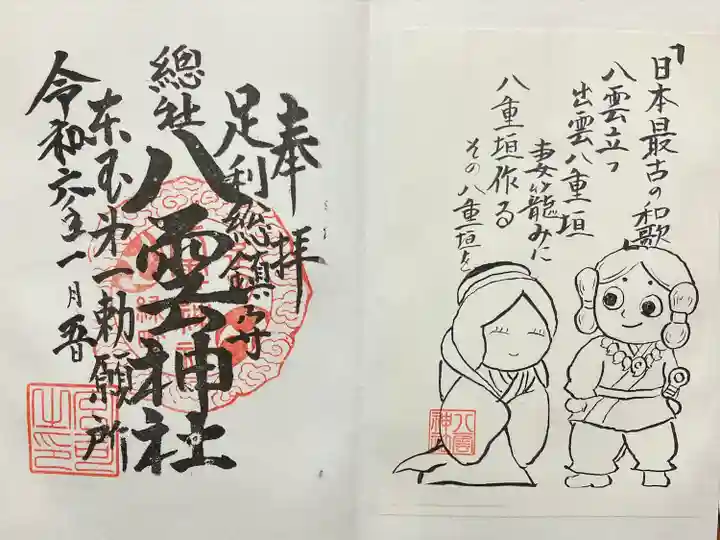 奉拝
足利總鎮守
總社
八雲神社
東国第一勅願所
令和六年一月五日
「日本最古の和歌
八雲立つ
出雲八重垣
妻籠みに
八重垣作る
その八重垣を
八雲
神社